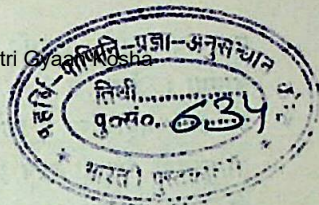 tri Gyaan Kosha
महर्षि-पाणिनि-प्रज्ञा-अनुसन्धान
तिथी..............
पु०सं०. 634
भारती पुस्तकालय